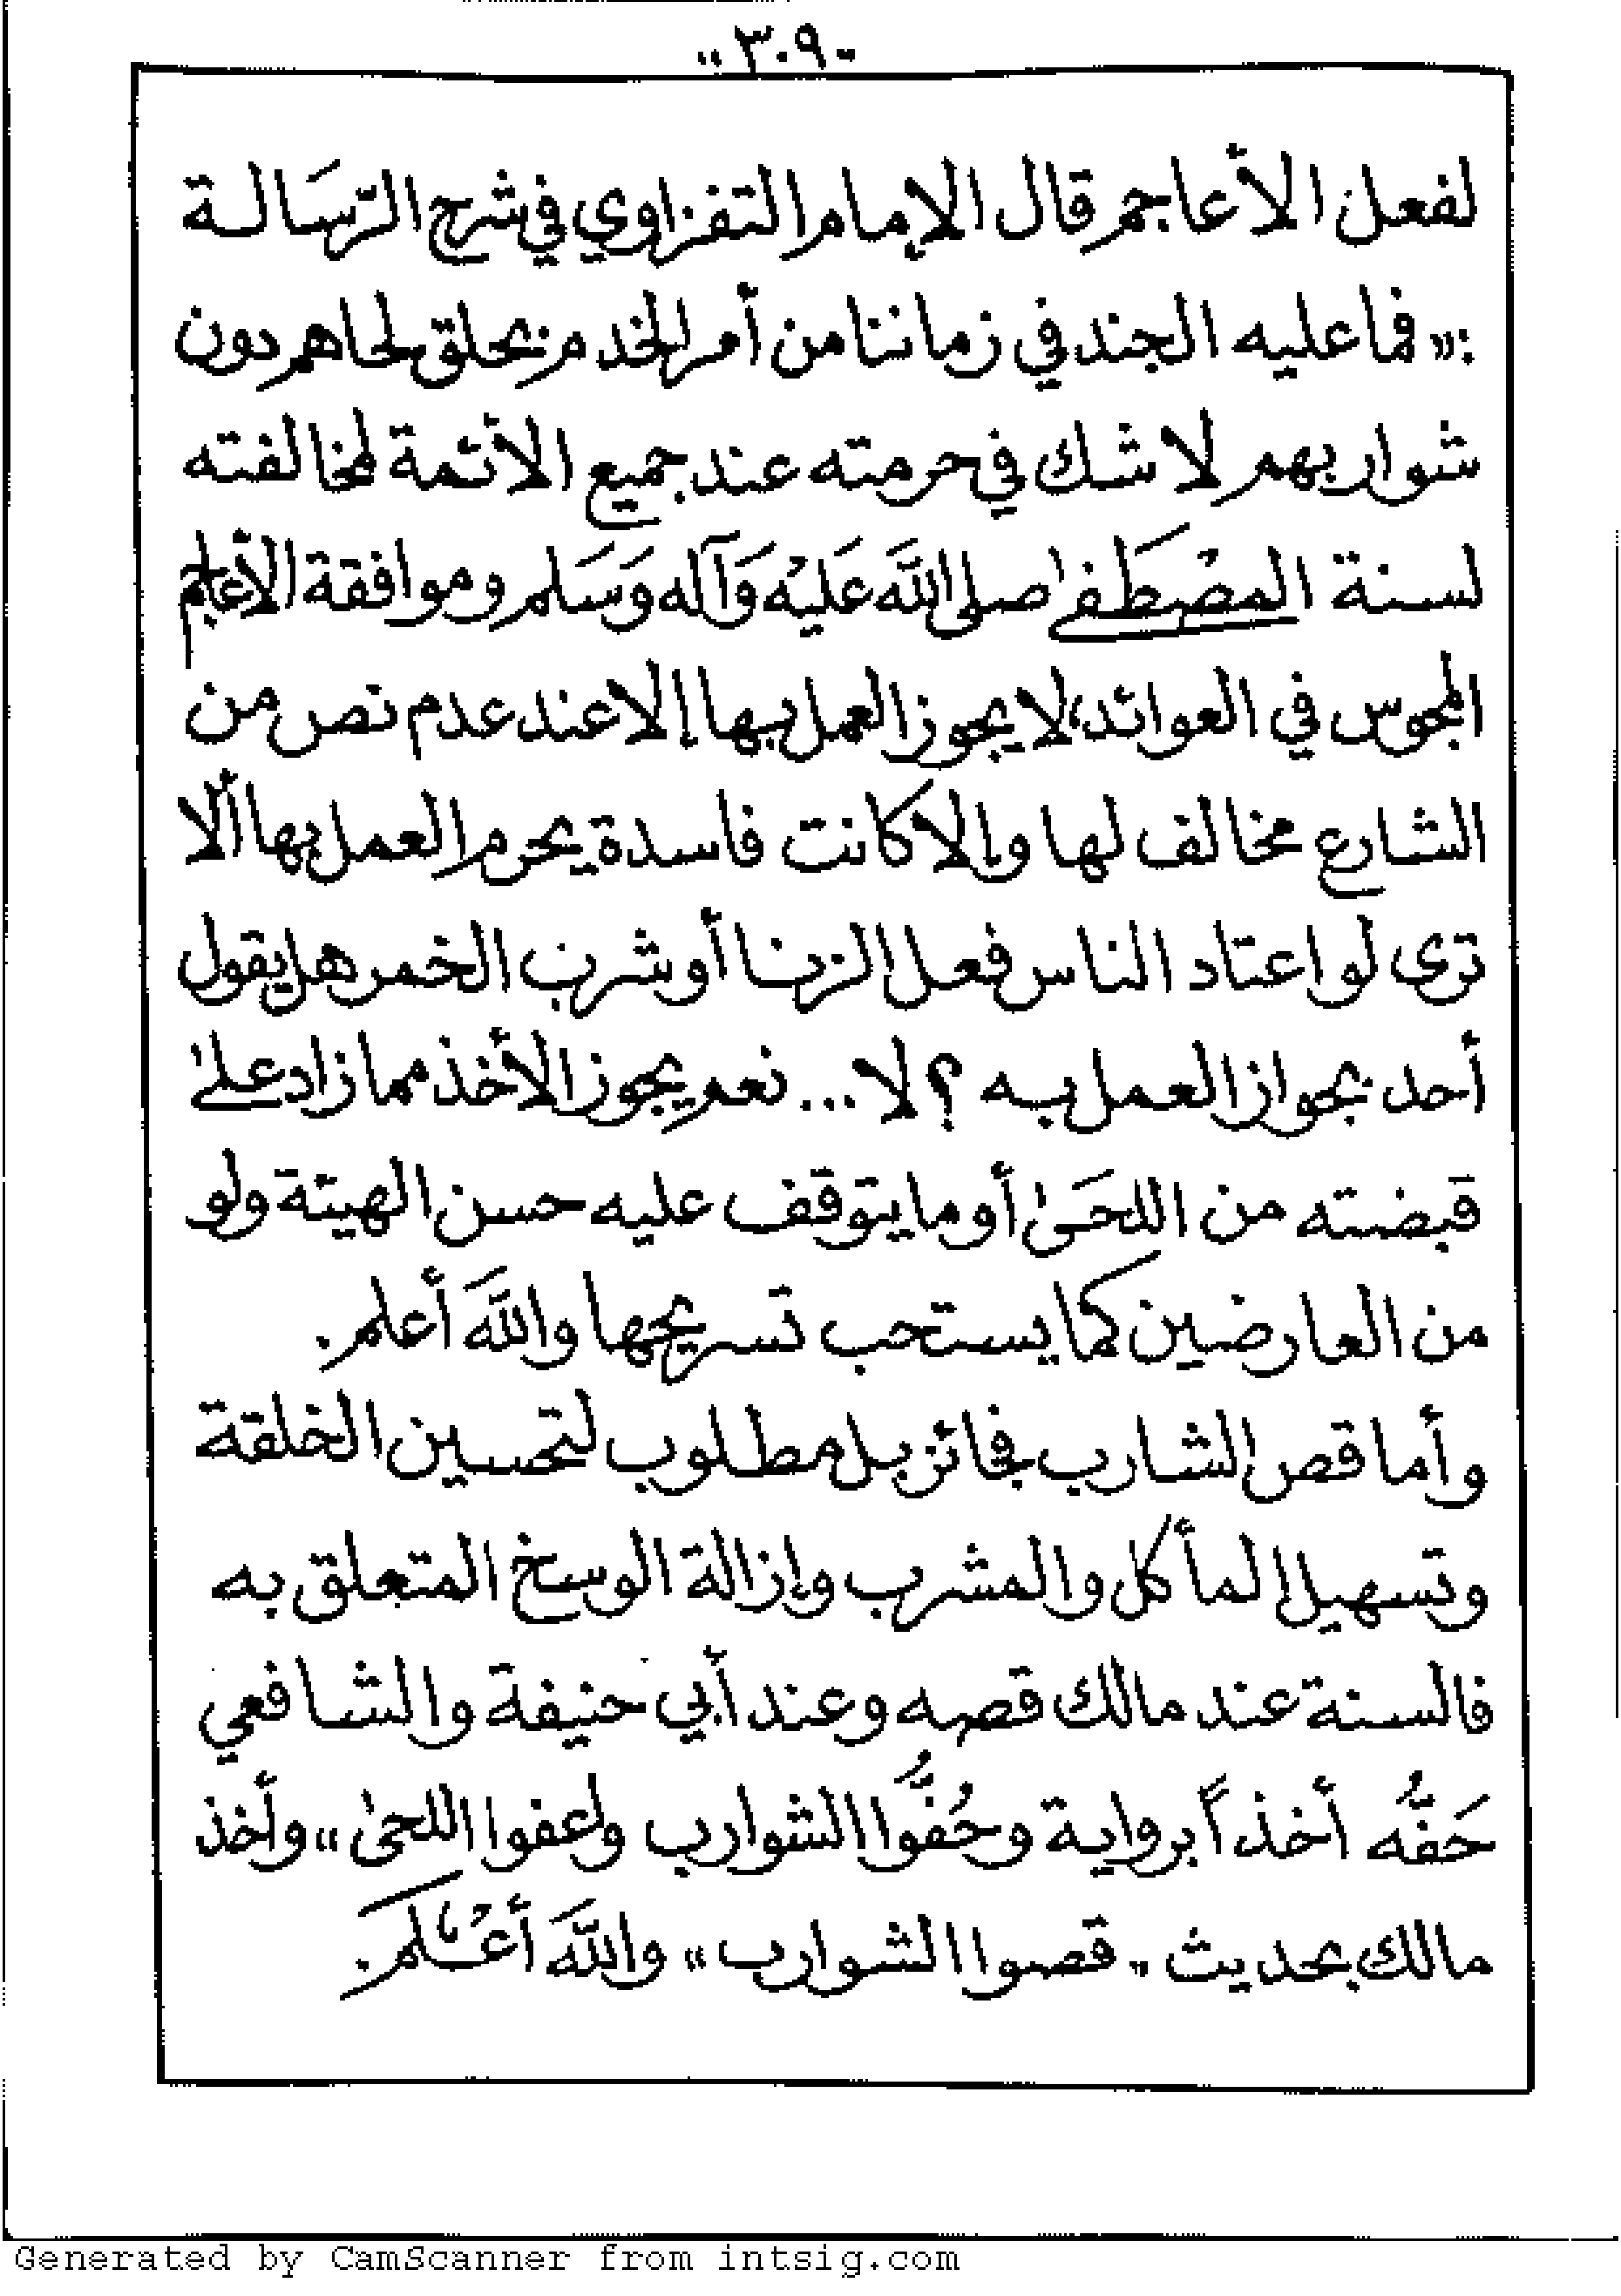 - ٣٠٩ -
لفعل الأعاجم قال الإمام التفزاوي في شرح الرّسَالة
:« فما عليه الجند في زماننا من أمر الخدم بحلق لحاهم دون
شواربهم لا شك في حرمته عند جميع الأئمة لمخالفته
لسنة المصْطَفىٰ صلى اللَّه عَليْه وَآله وَسَلم وموافقة الأعاجم
المجوس في العوائد، لا يجوز العمل بها إلا عند عدم نص من
الشارع مخالف لها وإلا كانت فاسدة يحرم العمل بها ألا
ترى لو اعتاد الناس فعل الزنا أو شرب الخمر هل يقول
أحد بجواز العمل به ؟ لا ... نعم يجوز الأخذ مما زاد علىٰ
قبضته من اللحَىٰ أو ما يتوقف عليه حسن الهيئة ولو
من العارضين كما يستحب تسريحها واللَّه أعلم .
وأما قص الشارب فجائز بل مطلوب لتحسين الخلقة
وتسهيل المأكل والمشرب وإزالة الوسخ المتعلق به
فالسنة عند مالك قصه وعند أبي حنيفة والشافعي
حَفُّه أخذاً برواية وحُفُّوا الشوارب وأعفوا اللحىٰ » وأخذ
مالك بحديث « قصوا الشوارب » واللَّه أعْلم .
Generated by CamScanner from intsig.com